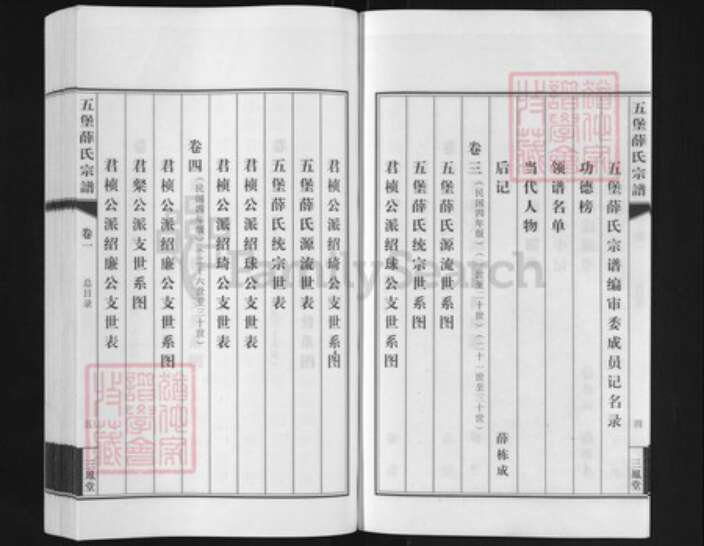 五堡薛氏宗譜
四
三鳳堂
五堡薛氏宗谱编审委成员记名录
功德榜
领谱名单
当代人物
后记 薛栋成
卷三(民国四年版)(一世至二十世)(二十一世至三十世)
五堡薛氏源流世系图
五堡薛氏统宗世系图
君桢公派绍球公支世系图
君桢公派绍琦公支世系图
五堡薛氏源流世表
五堡薛氏统宗世表
君桢公派绍球公支世表
君桢公派绍琦公支世表
卷四(民国四年版)(二十六世至三十世)
君桢公派绍廉公支世系图
君粲公派支世系图
君桢公派绍廉公支世表
五堡薛氏宗譜
卷一
总目录
五
三鳳堂
FamilySearch